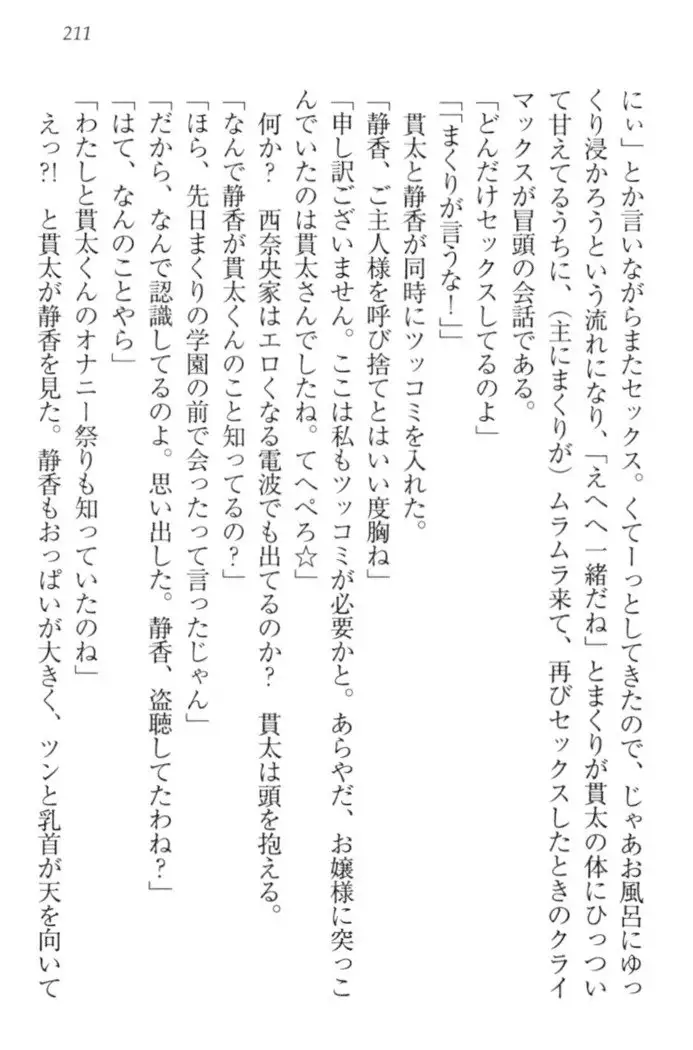 211
にぃ」とか言いながらまたセックス。くてーっとしてきたので、じゃあお風呂にゆっ
くり浸かろうという流れになり、「えへへ一緒だね」とまくりが貫太の体にひっつい
て甘えてるうちに、（主にまくりが）ムラムラ来て、再びセックスしたときのクライ
マックスが冒頭の会話である。
「どんだけセックスしてるのよ」
「「まくりが言うな！」」
貫太と静香が同時にツッコミを入れた。
「静香、ご主人様を呼び捨てとはいい度胸ね」
「申し訳ございません。ここは私もツッコミが必要かと。あらやだ、お嬢様に突っこ
んでいたのは貫太さんでしたね。てへぺろ☆」
何か？　西奈央家はエロくなる電波でも出てるのか？　貫太は頭を抱える。
「なんで静香が貫太くんのこと知ってるの？」
「ほら、先日まくりの学園の前で会ったって言ったじゃん」
「だから、なんで認識してるのよ。思い出した。静香、盗聴してたわね？」
「はて、なんのことやら」
「わたしと貫太くんのオナニー祭りも知っていたのね」
えっ?!　と貫太が静香を見た。静香もおっぱいが大きく、ツンと乳首が天を向いて